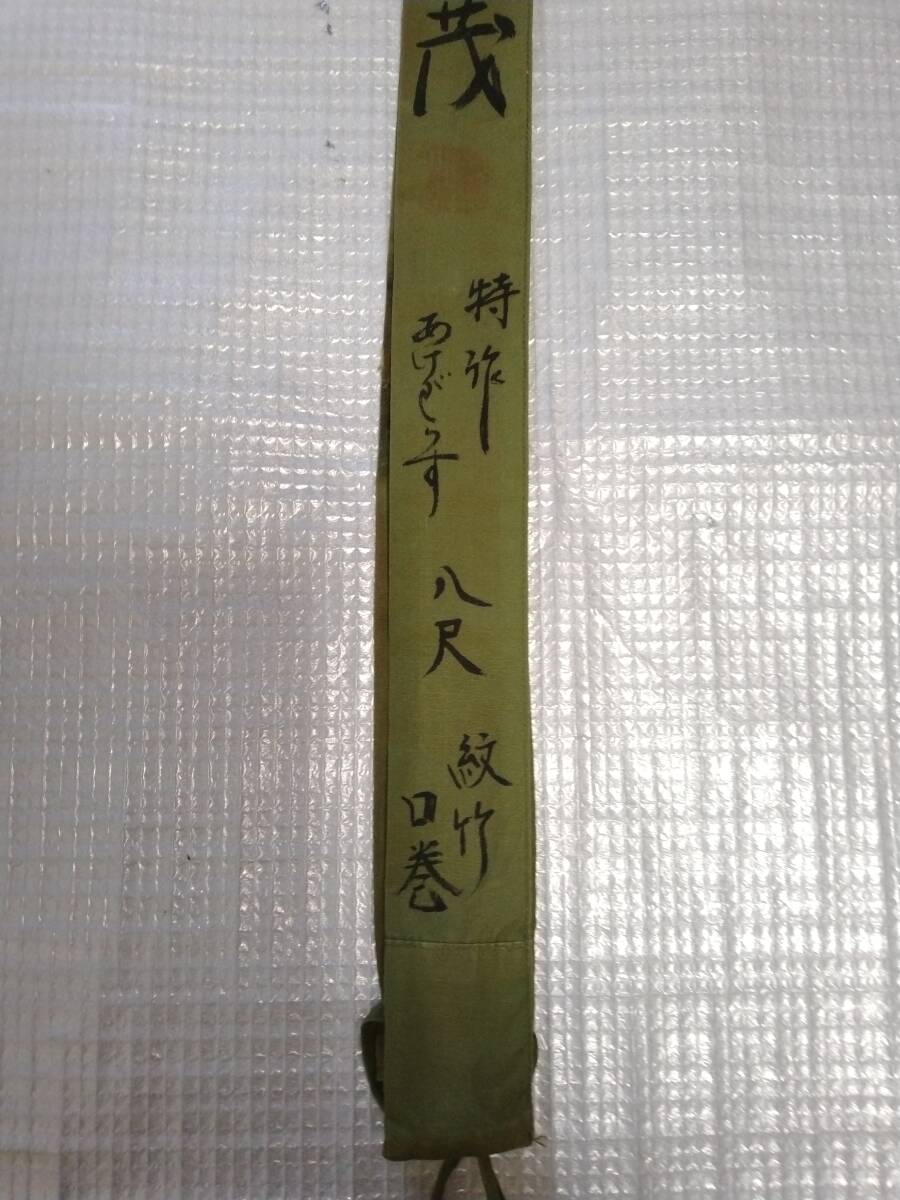 茂
特作
あけがらす
八尺
紋竹
口巻